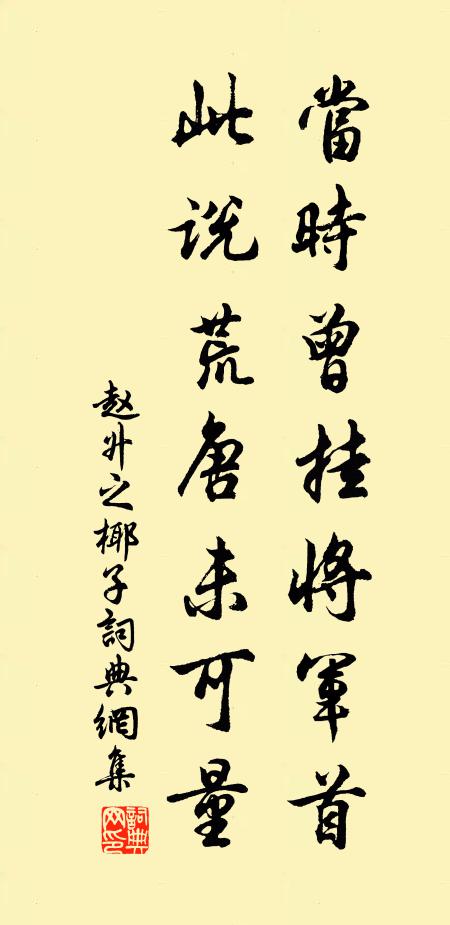 當時曾挂將軍首
此说荒唐未可量
赵升之椰子詞典網集
詞典网印